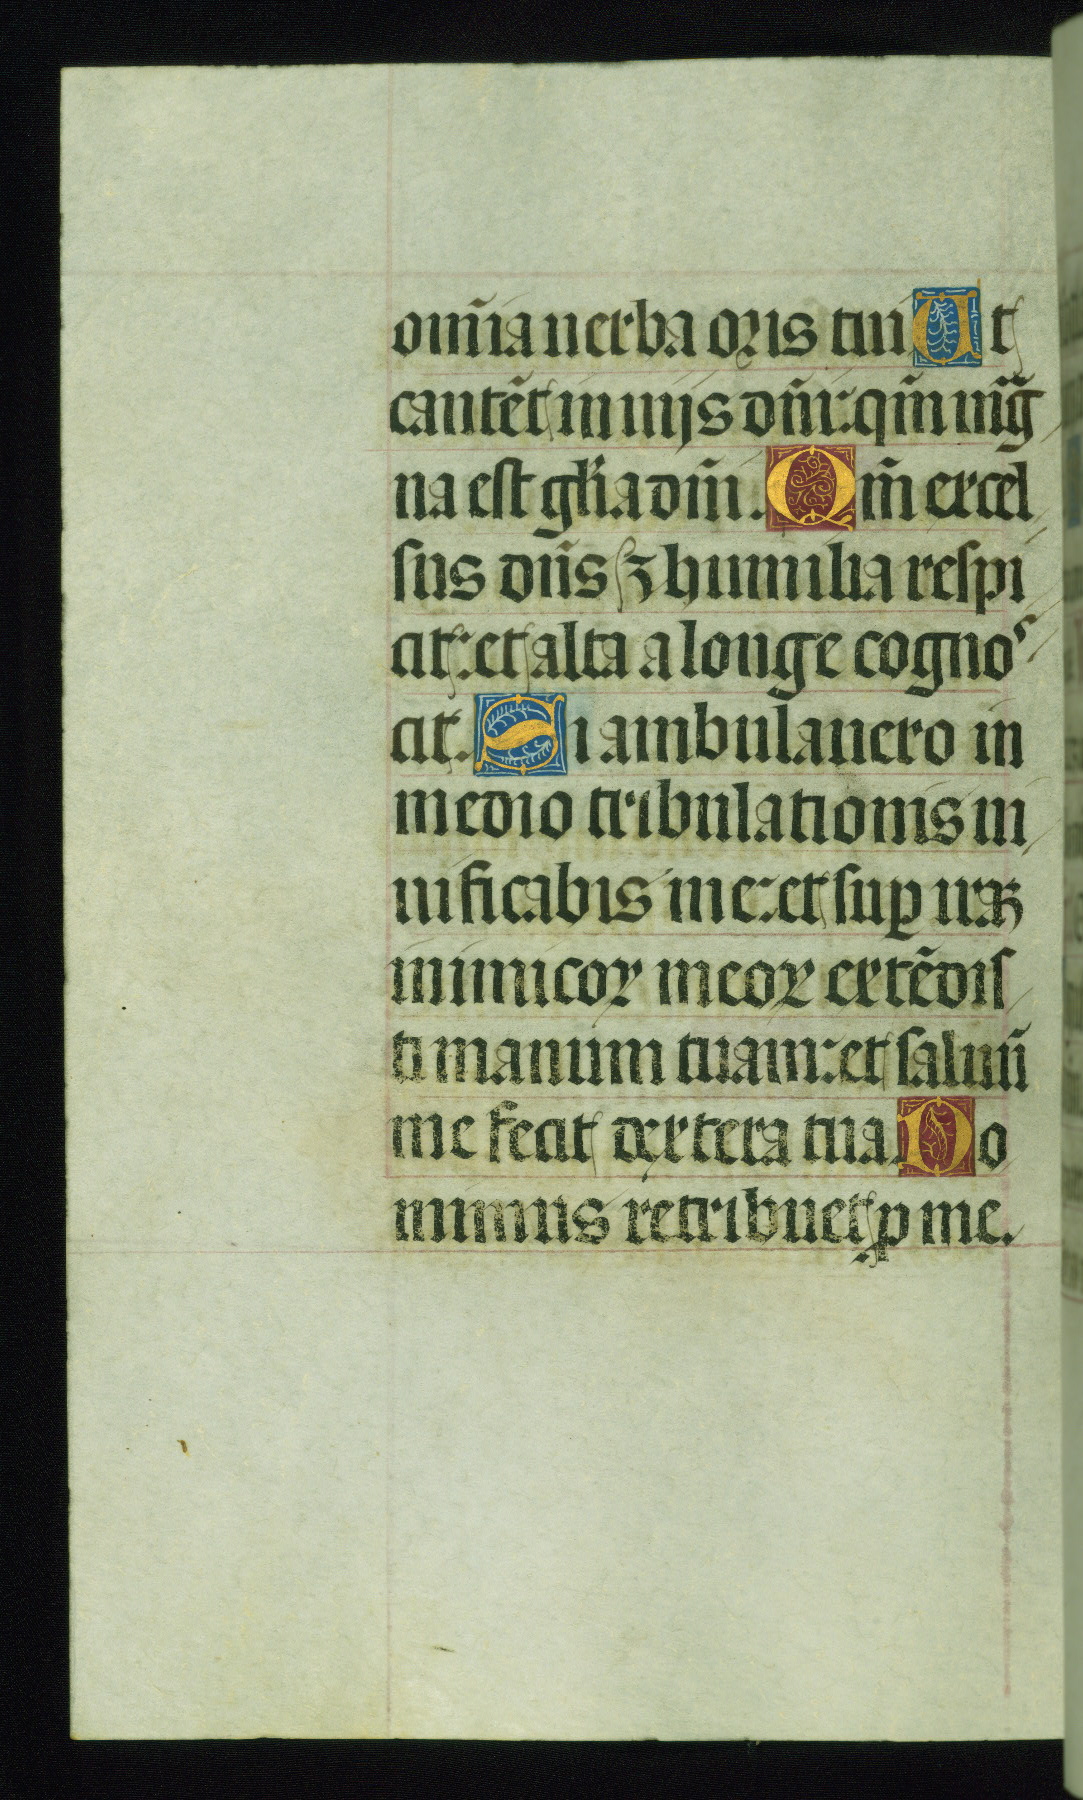 om̄ia uerba oris tui Et
cantēt in uijs dn̄i: qm̄ mag̃
na est gl̄ia dn̄i. Qm̄ excel
sus dn̄s ⁊ humilia respi
cit: et alta a longe cognos
cit. Si ambulauero in
medio tribulationis ui
uificabis me: et suꝑ iraꝫ
inimicoꝝ meoꝝ extēdis
ti manum tuam: et saluū
me fecit dextera tua. Do
minus retribuet ꝓ me.